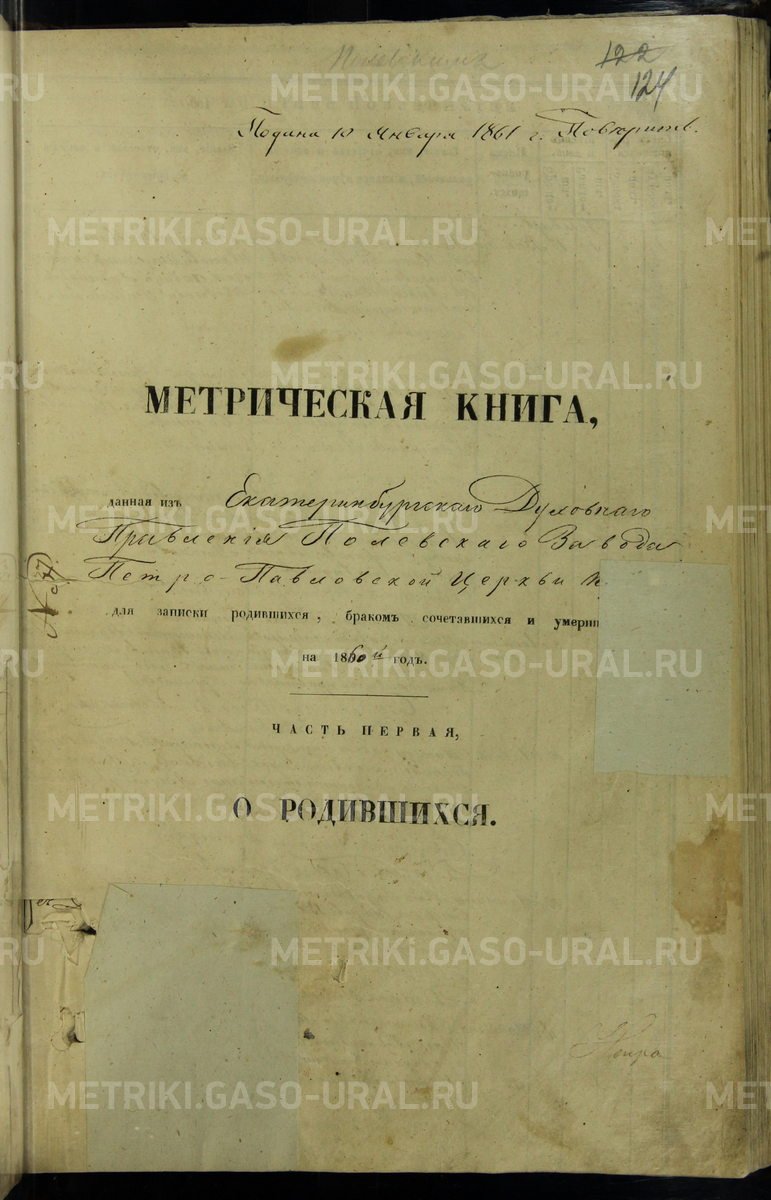 122
124
Подана 10 Января 1861 г.
МЕТРИЧЕСКАЯ КНИГА,
данная изъ Екатеринбургскаго Духовнаго
Правленія Полевскаго Завода
Петро-Павловской Церкви
для записки родившихся, бракомъ сочетавшихся и умерш
на 1860й годъ.
ЧАСТЬ ПЕРВАЯ,
О РОДИВШИХСЯ.
METRIKI.GASO-URAL.RU